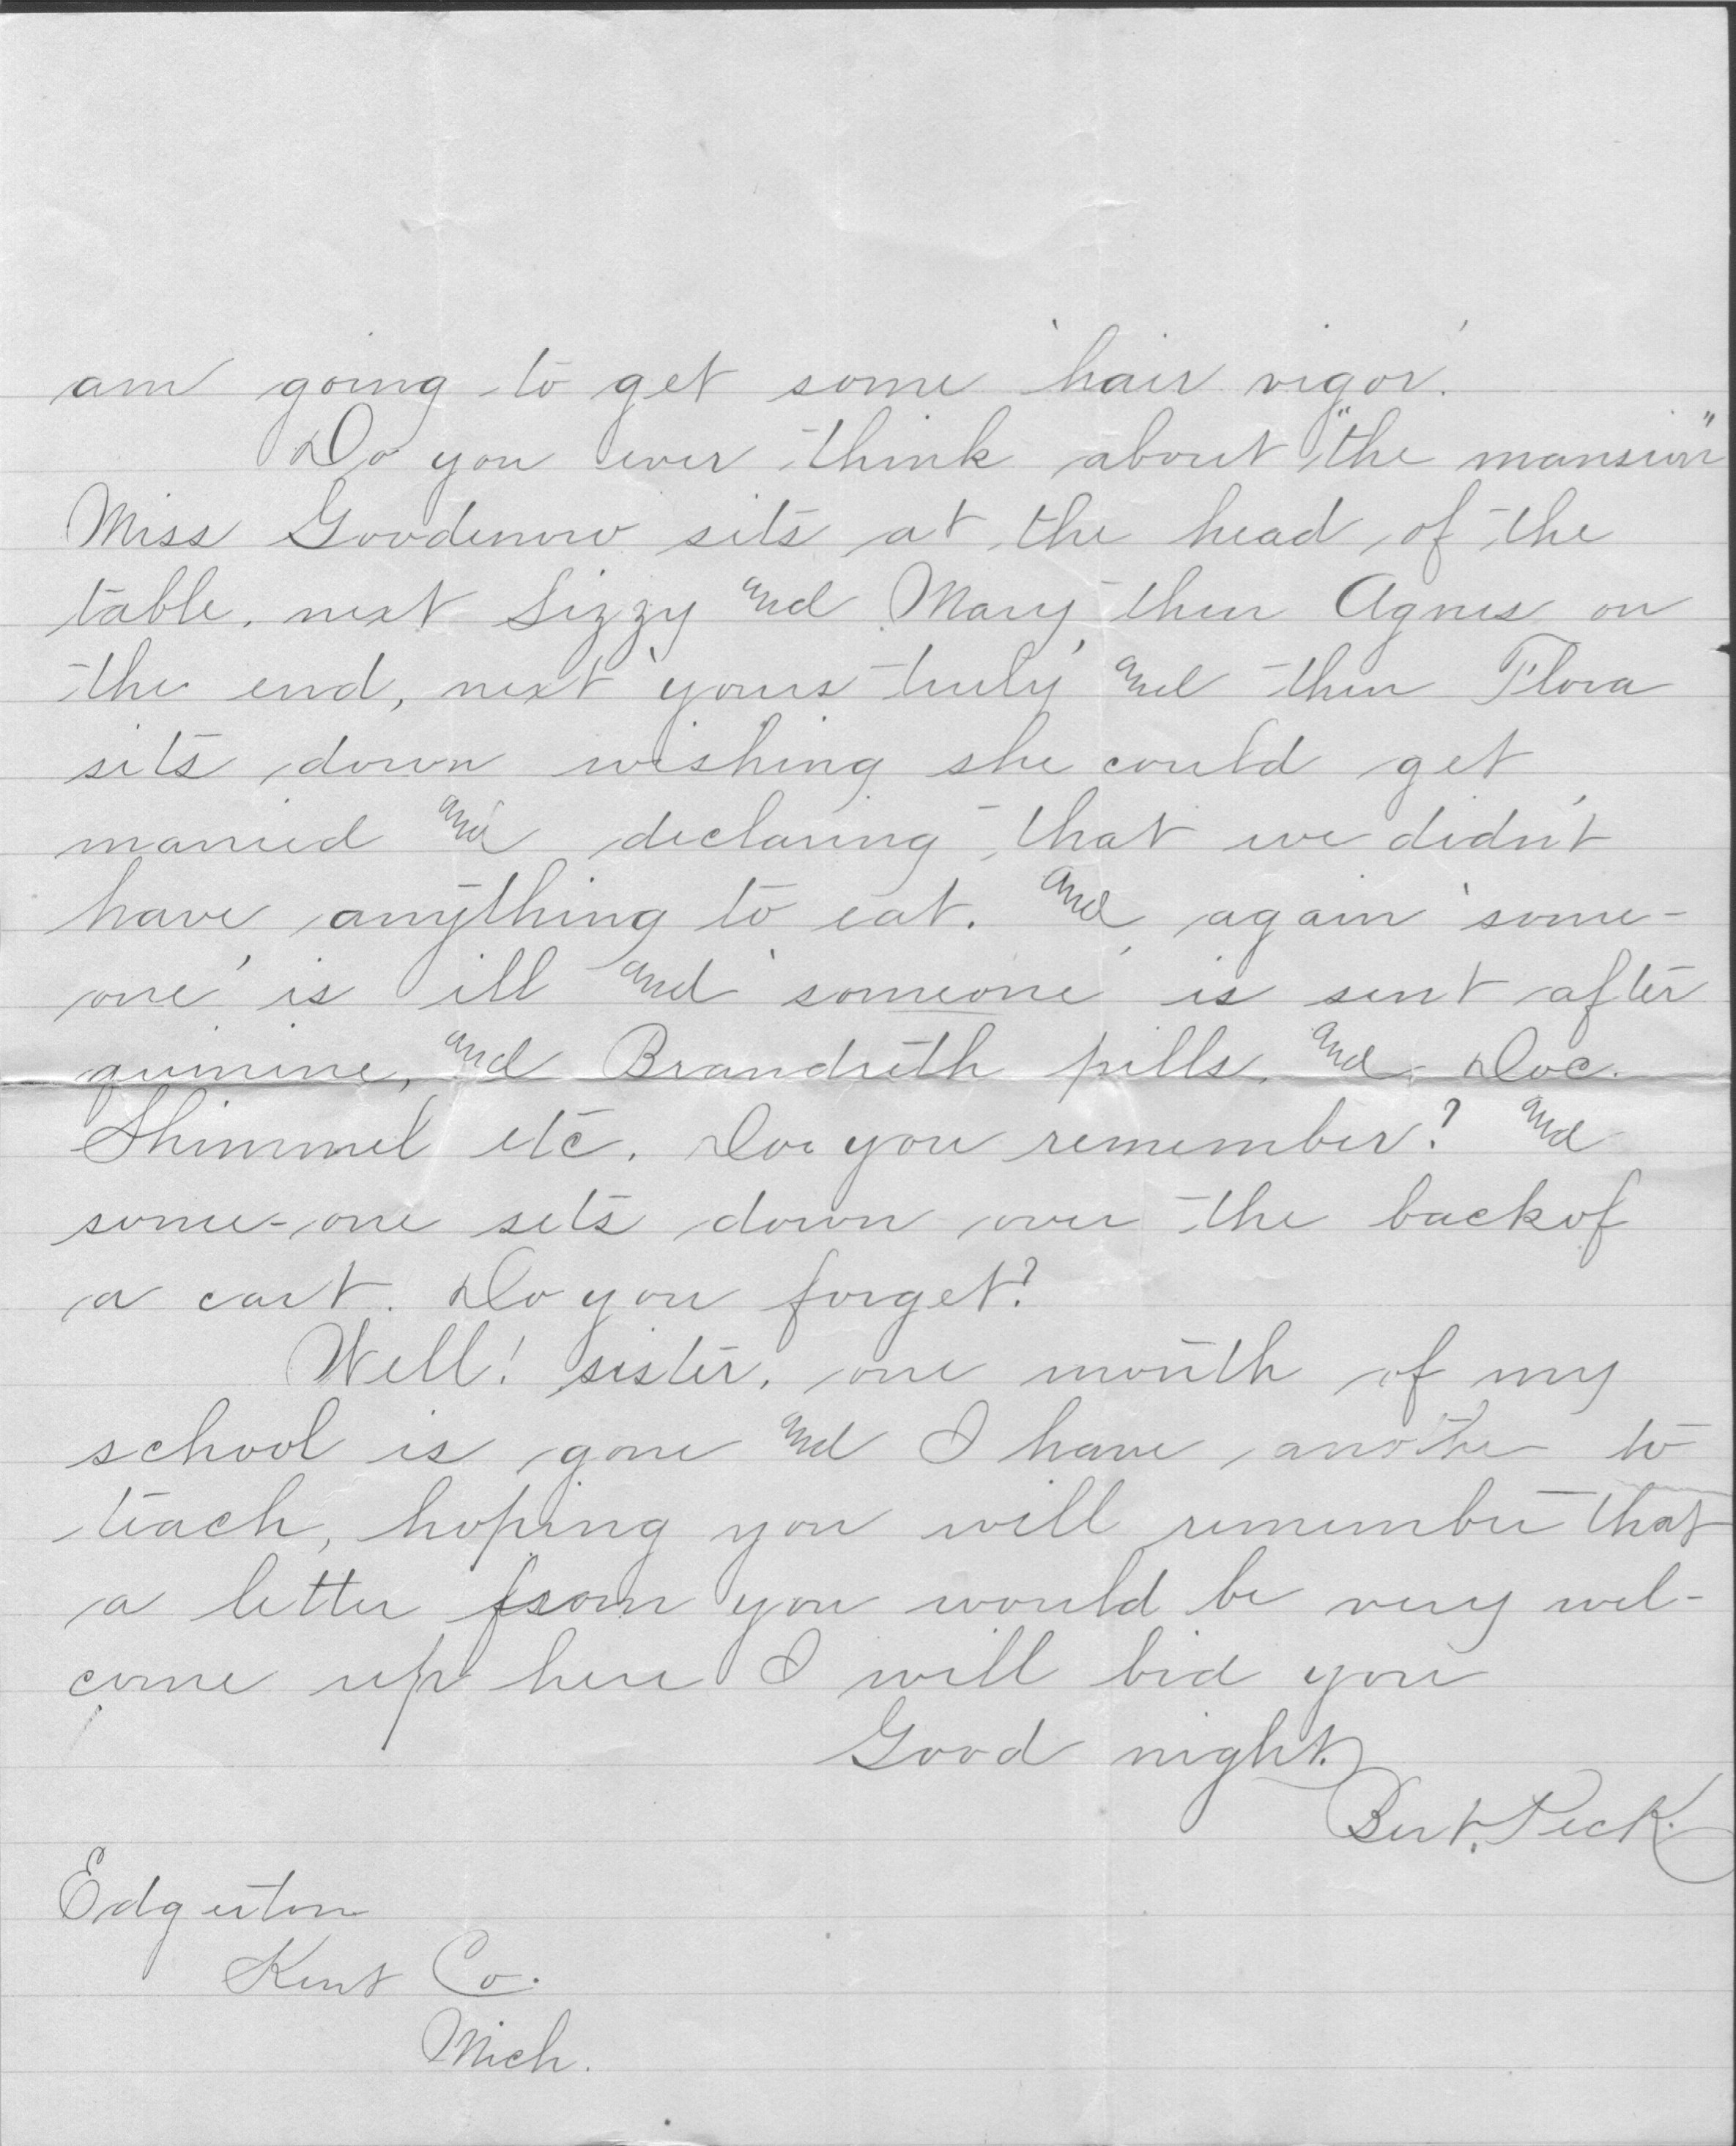 am going to get some 'hair vigor.'
Do you ever think about "the mansion"
Miss Goodenow sits at the head of the
table. next Lizzy and Mary, then Agnes on
the end, next 'yours truly' and then Flora
sits down wishing she could get
married and declaring that we didn't
have anything to eat. And again 'some-
one' is ill and 'someone' is sent after
quinine, and Brandreth pills, and Doc.
Shimmel etc. Do you remember? And
some-one sets down over the back of
a cart. Do you forget?
Well! sister, one month of my
school is gone and I have another to
teach, hoping you will remember that
a letter from you would be very wel-
come up here I will bid you
Good night.
Bert. Peck.
Edgerton
Kent Co.
Mich.